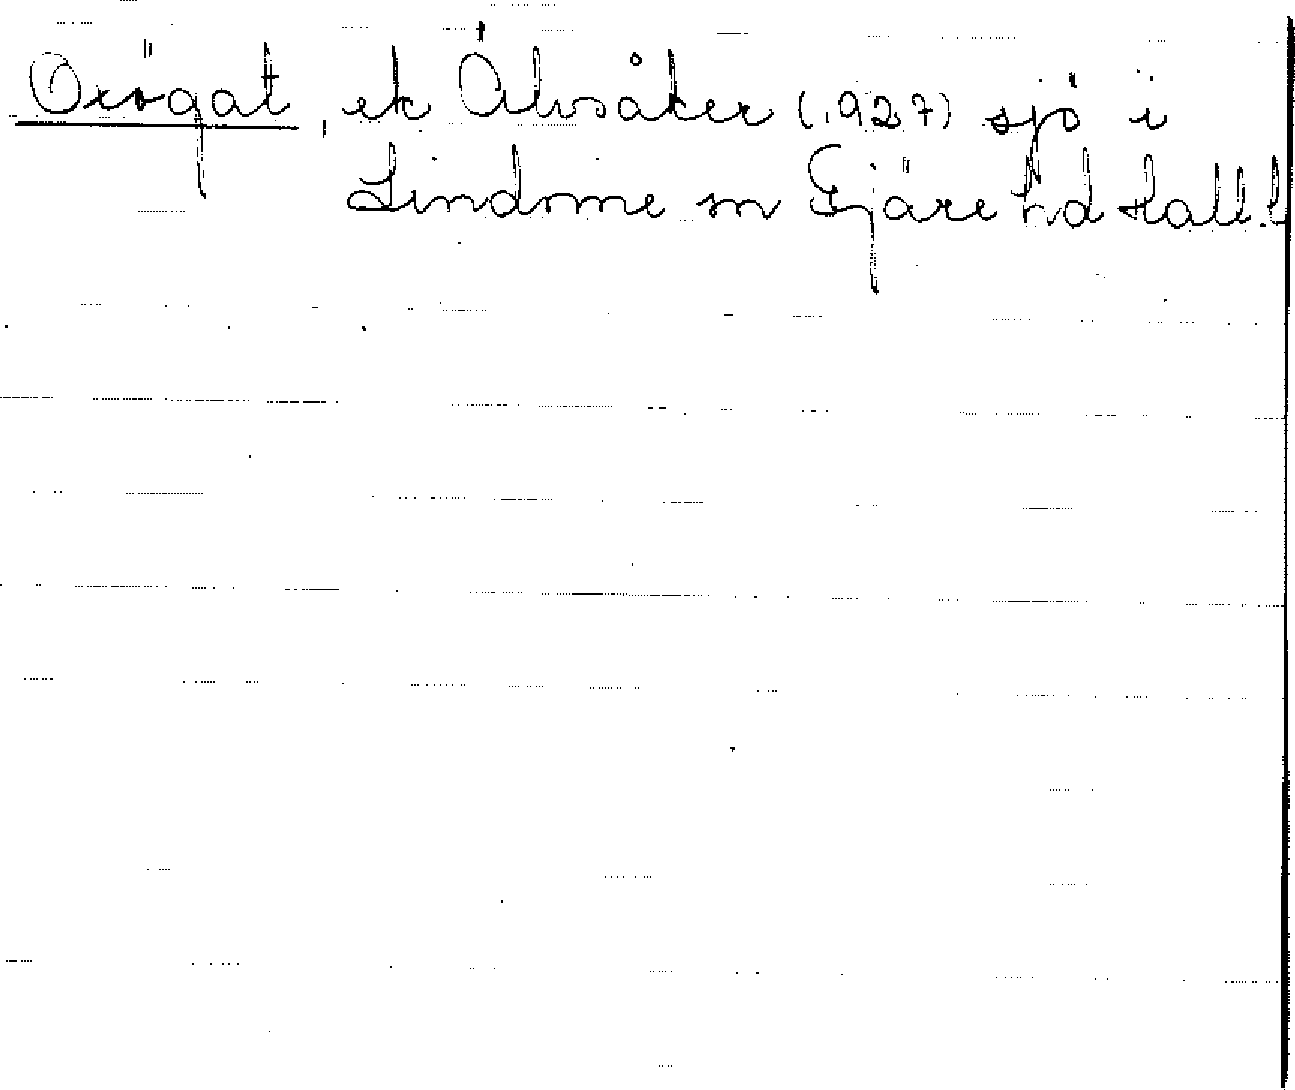 Oxögat, ek Älvsåker (1927) sjö i
Lindome sn Fjäre hd Hall.l